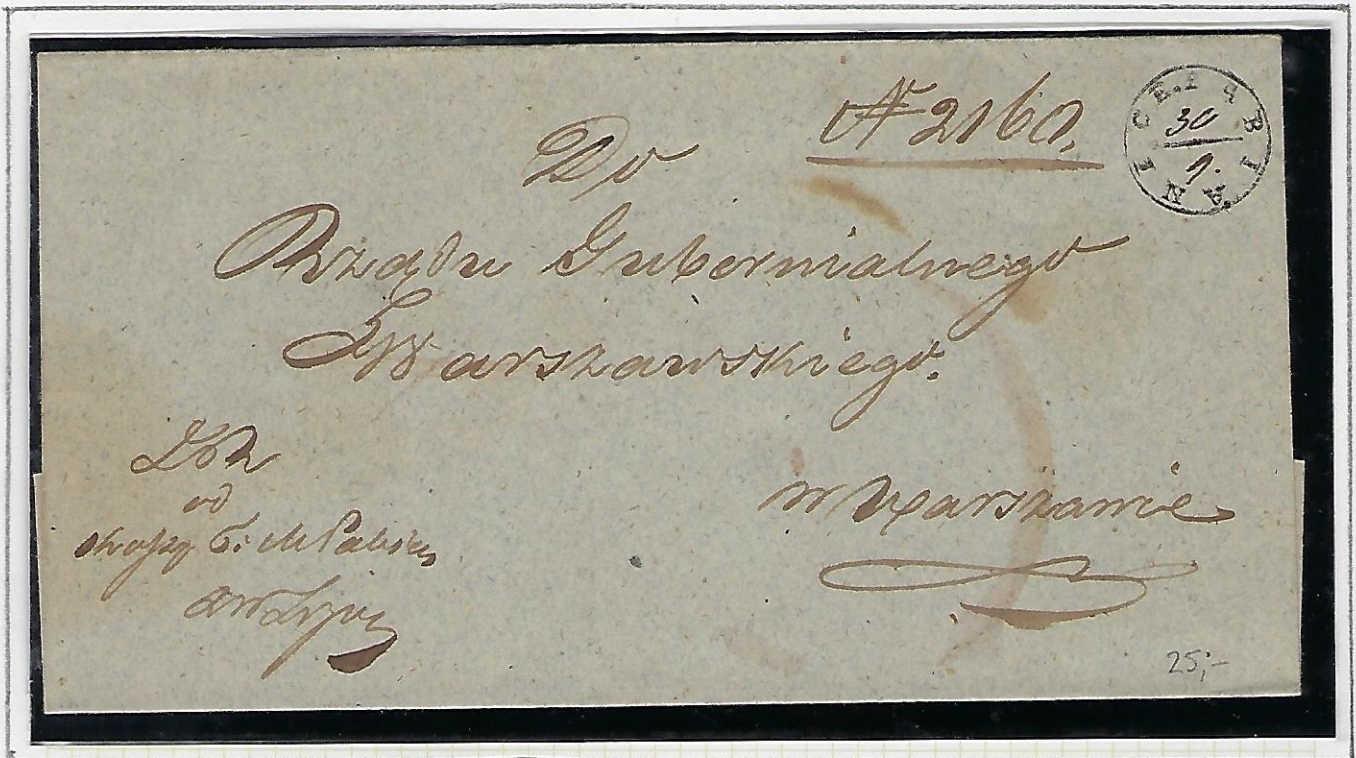 № 2160.
PABIANICE.
30
9.
Do
Rządu Gubernialnego
Warszawskiego.
w Warszawie
od
25,-